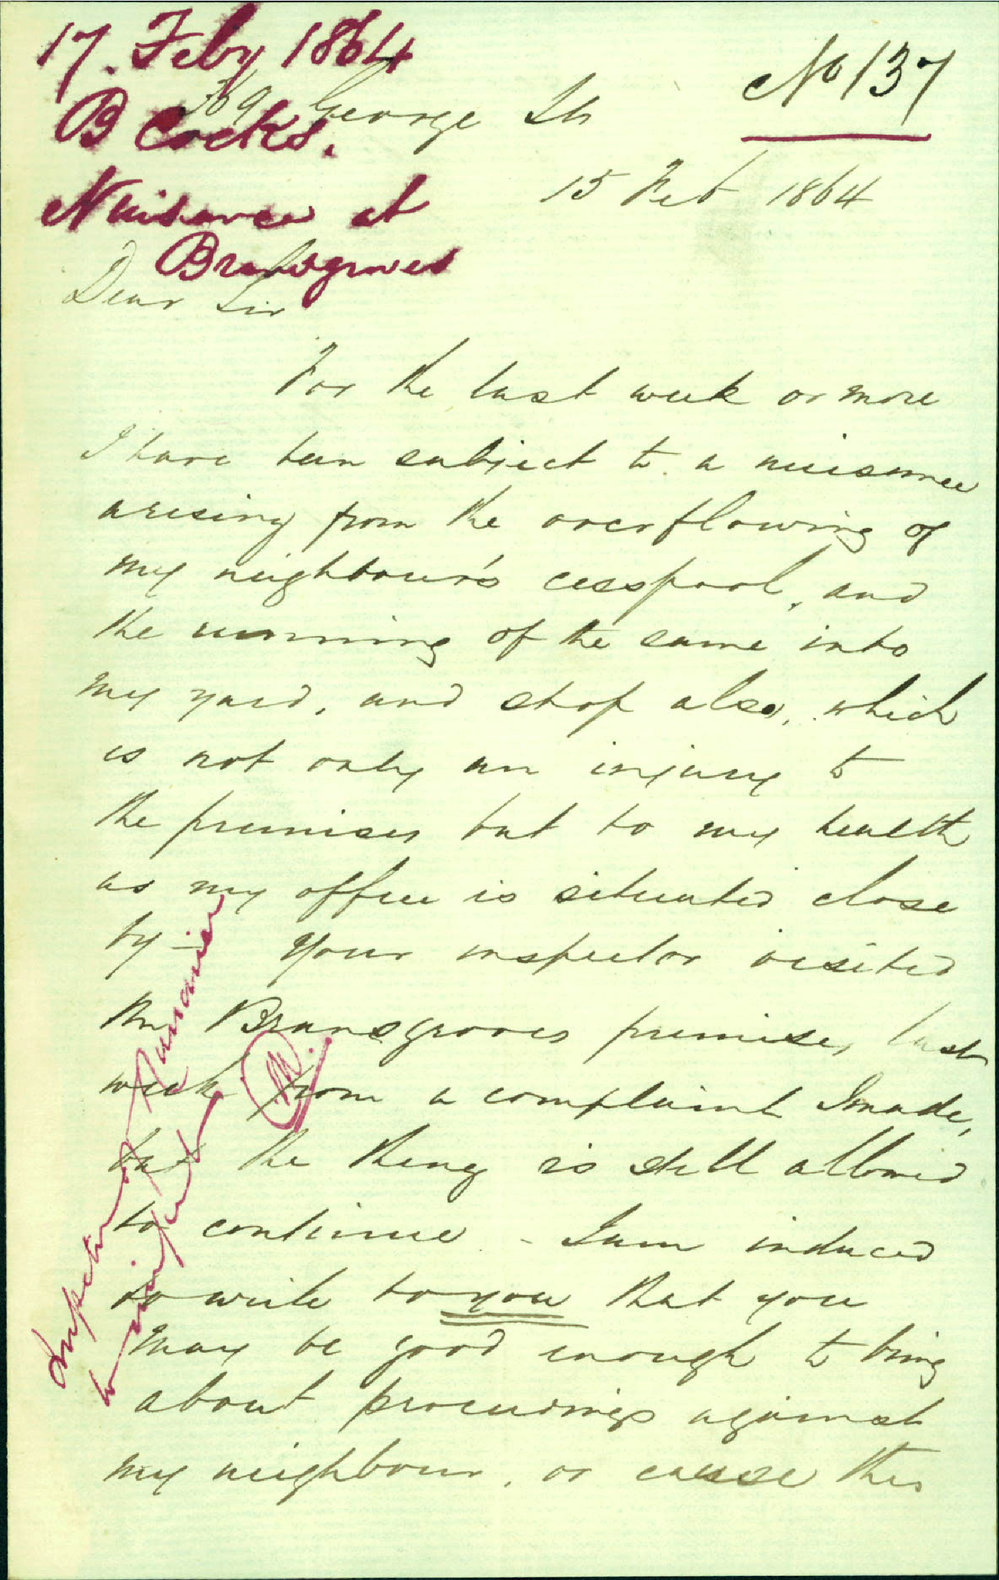 17. Feby 1864
B Cocks.
Nuisance at
Bransgroves
No 137
369 George St
15 Feb 1864
Dear Sir
For the last week or more
I have been subject to a nuisance
arising from the overflowing of
my neighbour's cesspool, and
the running of the same into
my yard, and shop also, which
is not only an injury to
the premises but to my health
as my office is situated close
by — Your inspector visited
Mr Bransgroves premises last
week from a complaint I made,
but the thing is still allowed
to continue - I am induced
to write to you that you
may be good enough to bring
about proceedings against
my neighbour, or cause this
Inspector of Nuisances
to report